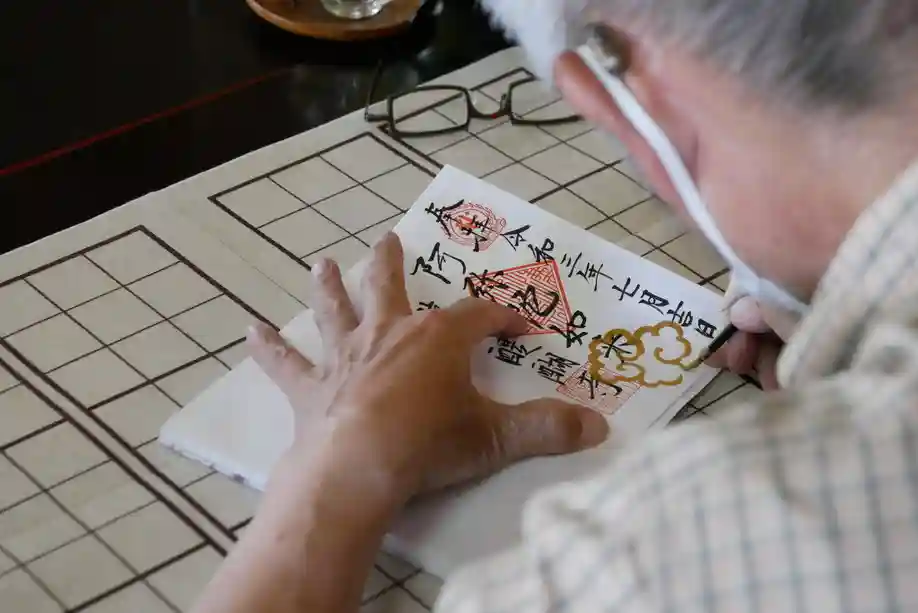 奉拝 令和三年七月吉日
阿弥陀如来
醍醐寺